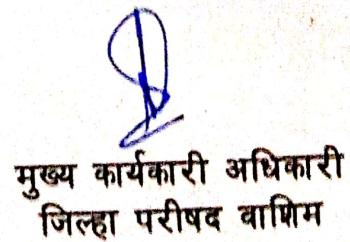 मुख्य कार्यकारी अधिकारी
जिल्हा परीषद वाशिम